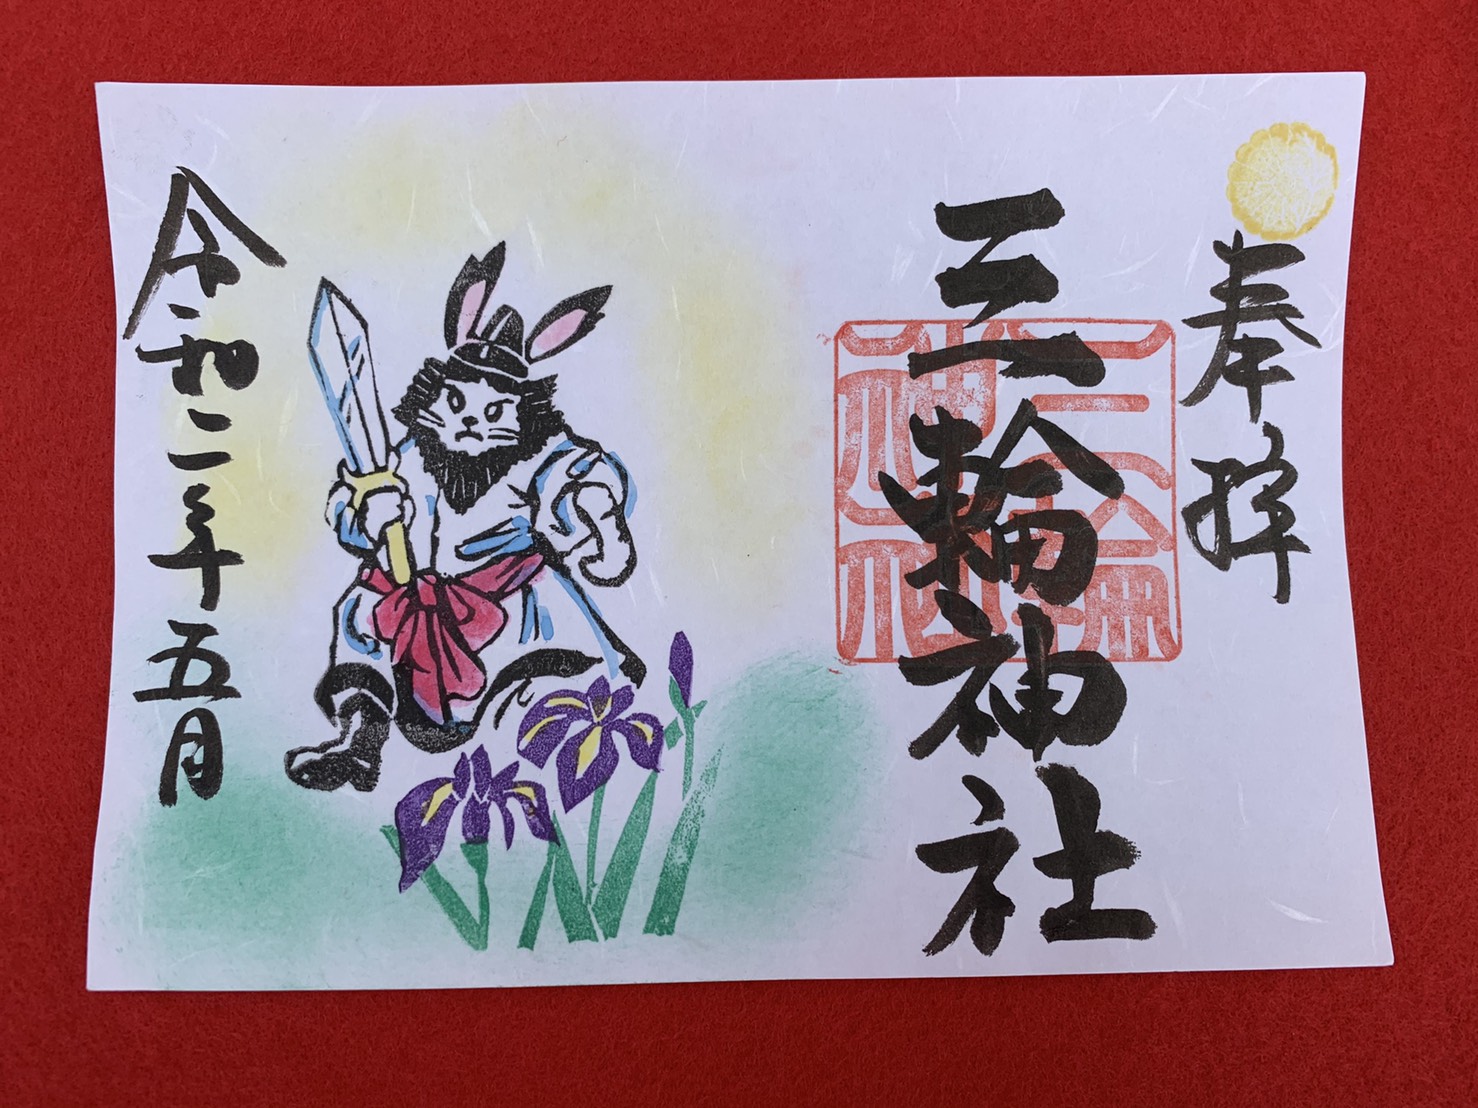 奉拝
三輪神社
三輪神社
令和二年五月